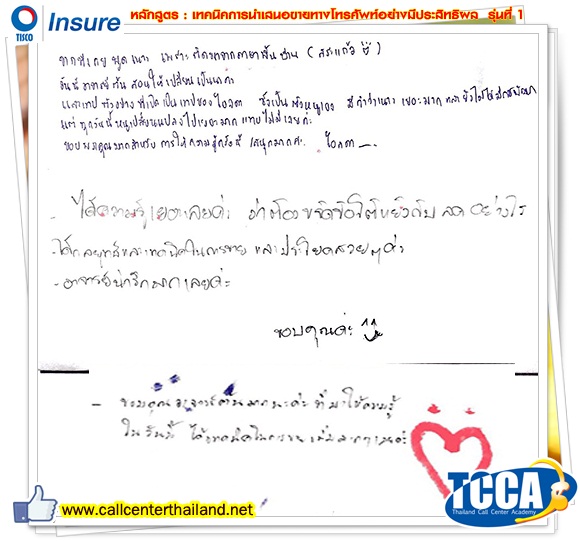 หลักสูตร : เทคนิคการนำเสนอขายทางโทรศัพท์อย่างมีประสิทธิผล รุ่นที่ 1
TISCO
Insure
จากที่เคย พูด เพราะ ( สระแก้ว )
วันนี้ อาจารย์ สอนให้เปลี่ยนเป็น
และเทป ตัวอย่าง ที่เปิด เป็น เทปของ ไอลดา ซึ่งเป็น ตัวหนูเอง มี คำว่า เยอะมาก
แต่ ทุกวันนี้ หนูเปลี่ยนแปลงไปเยอะมาก แทบไม่มีเลยค่ะ
ขอบพระคุณมากสำหรับ การให้ความรู้ครั้งนี้ สนุกมากค่ะ ไอลดา
- ได้ความรู้เยอะเลยค่ะ ว่าต้อง ข้อโต้แย้งกับ ลค อย่างไร
- ได้กลยุทธ์และเทคนิคในการขาย และประโยคสวยๆค่ะ
- อาจารย์น่ารักมากเลยค่ะ
ขอบคุณค่ะ
- ขอบคุณ อาจารย์ มากนะค่ะ ที่มาให้ความรู้
ในวันนี้ ได้เทคนิคในการขาย เพิ่ม เลยค่ะ
www.callcenterthailand.net
TCCA
Thailand Call Center Academy